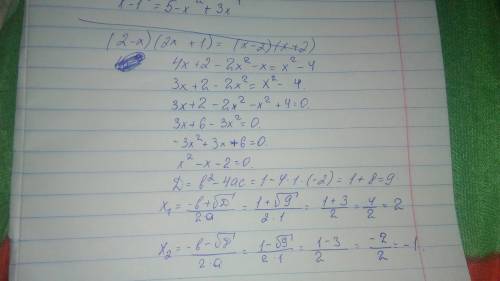 x-1 = 5-x² + 3x
(2-x)(2x+1) = (x-2)(x+2)
4x+2-2x²-x = x²-4
3x+2-2x² = x²-4.
3x+2-2x²-x²+4=0.
3x+6-3x²=0.
-3x²+3x+6=0.
x²-x-2=0.
D=b²-4ac=1-4·1·(-2)=1+8=9
x₁=(-b+√D)/(2a)=(1+√9)/(2·1)=(1+3)/2=4/2=2
x₂=(-b-√D)/(2·a)=(1-√9)/(2·1)=(1-3)/2=-2/2=-1.